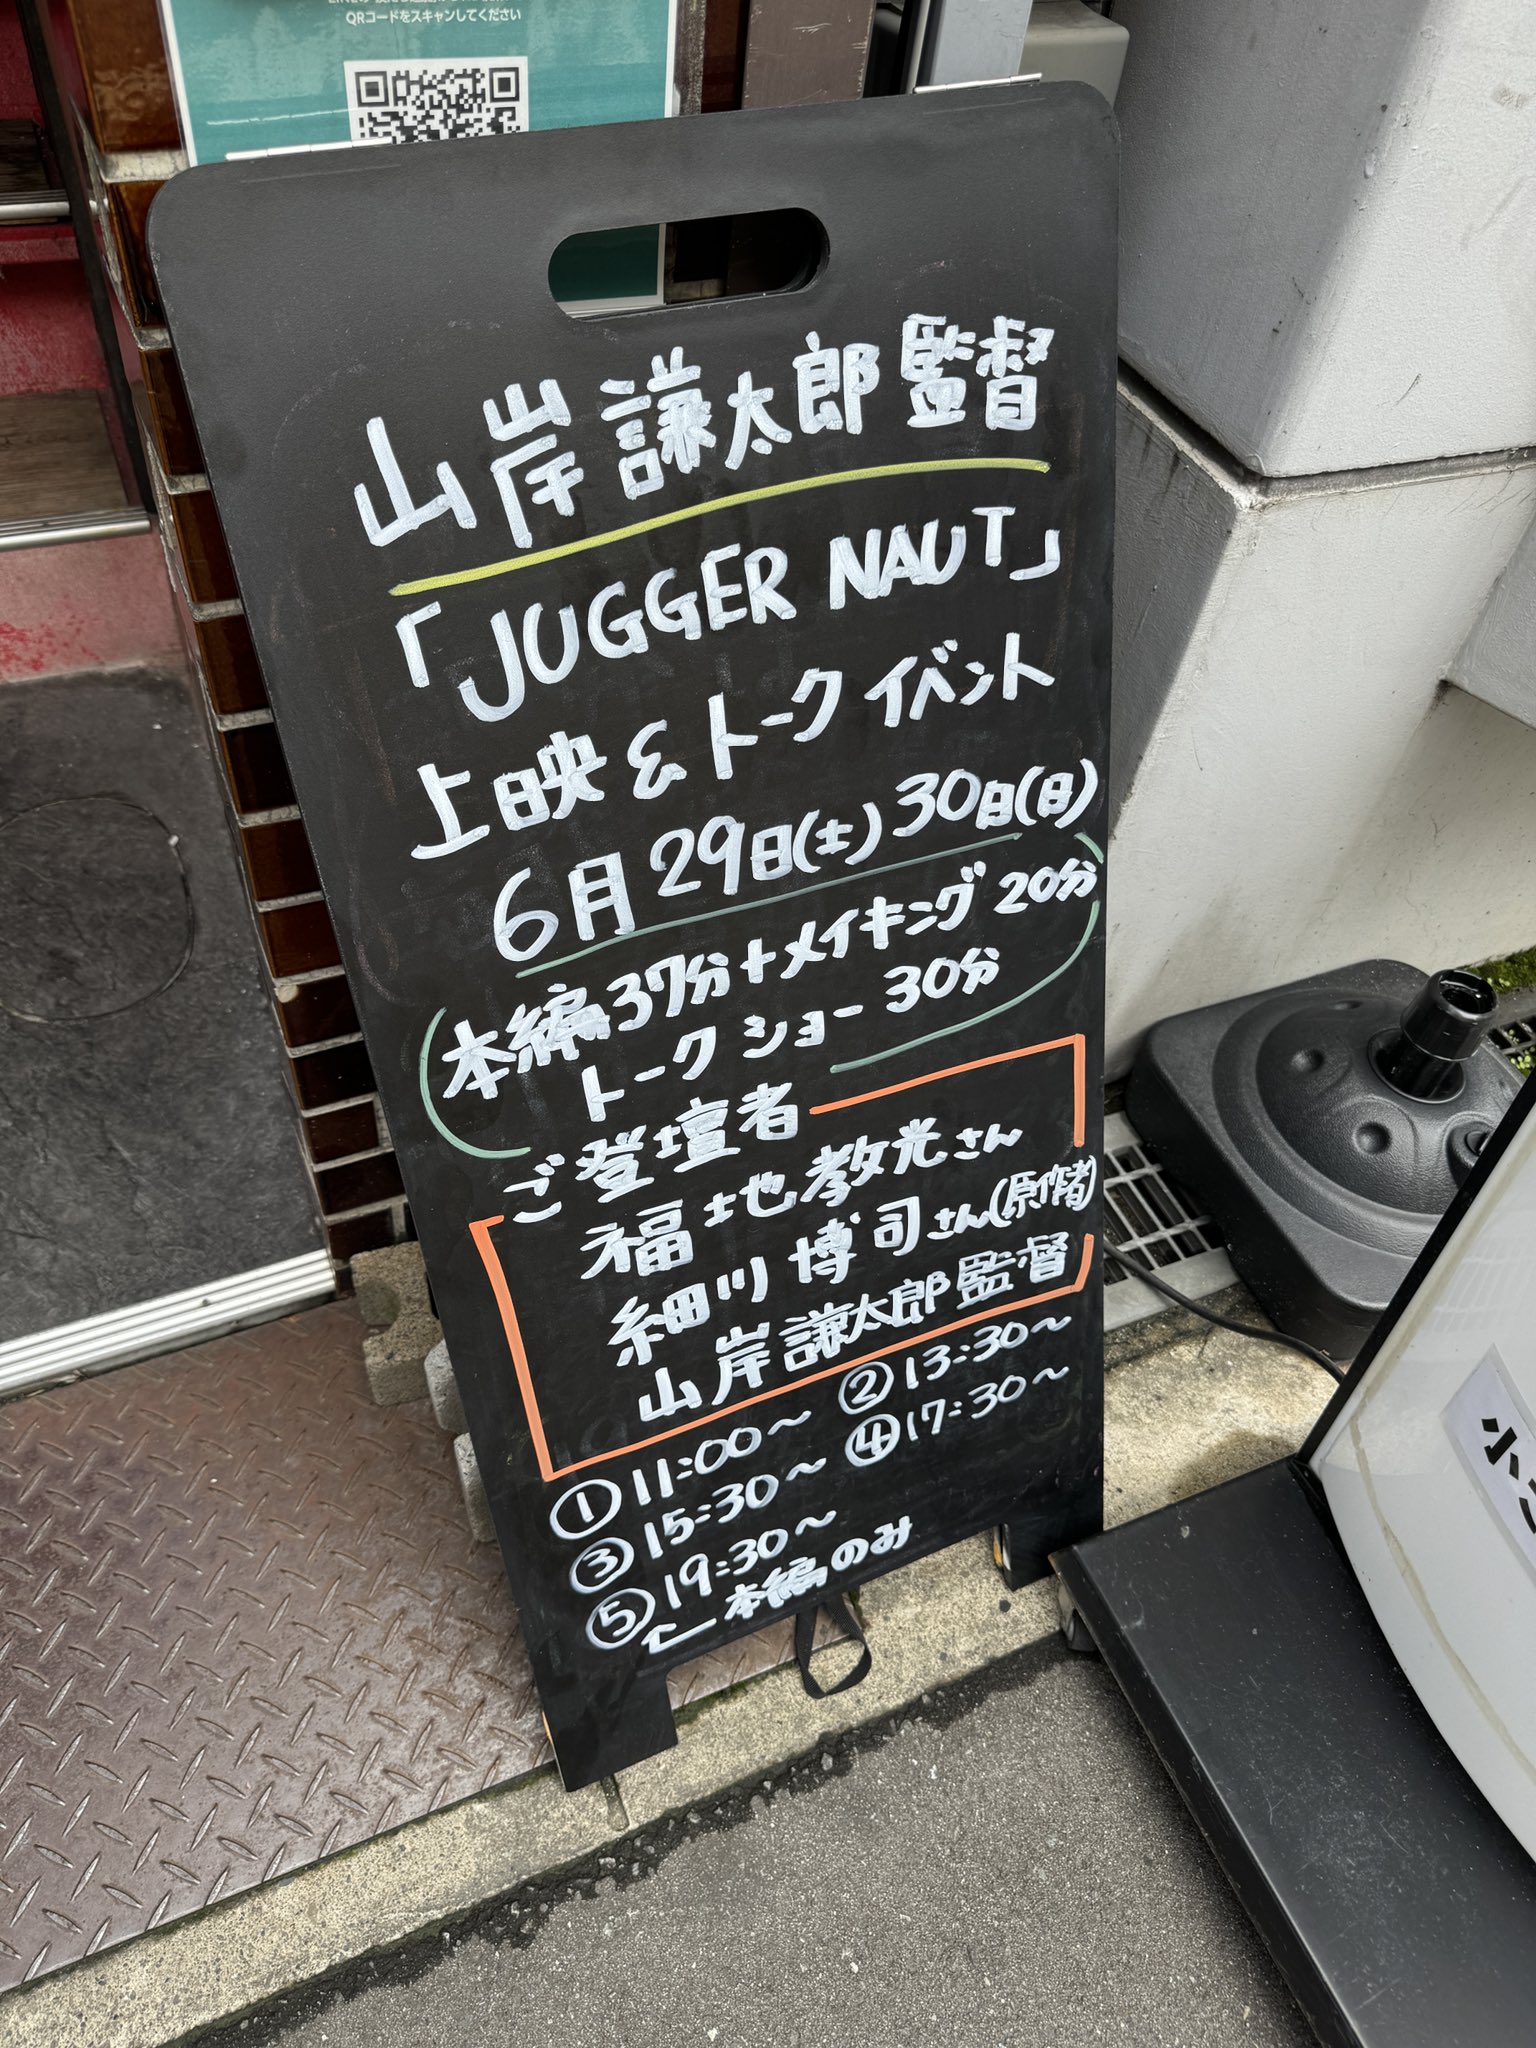 QRコードをスキャンしてください
山岸謙太郎監督
「JUGGER NAUT」
上映&トークイベント
6月29日(土)30日(日)
本編37分+メイキング20分
トークショー30分
ご登壇者
福地教光さん
細川博司さん(原作者)
山岸謙太郎監督
①11:00〜 ②13:30〜
③15:30〜 ④17:30〜
⑤19:30〜
本編のみ